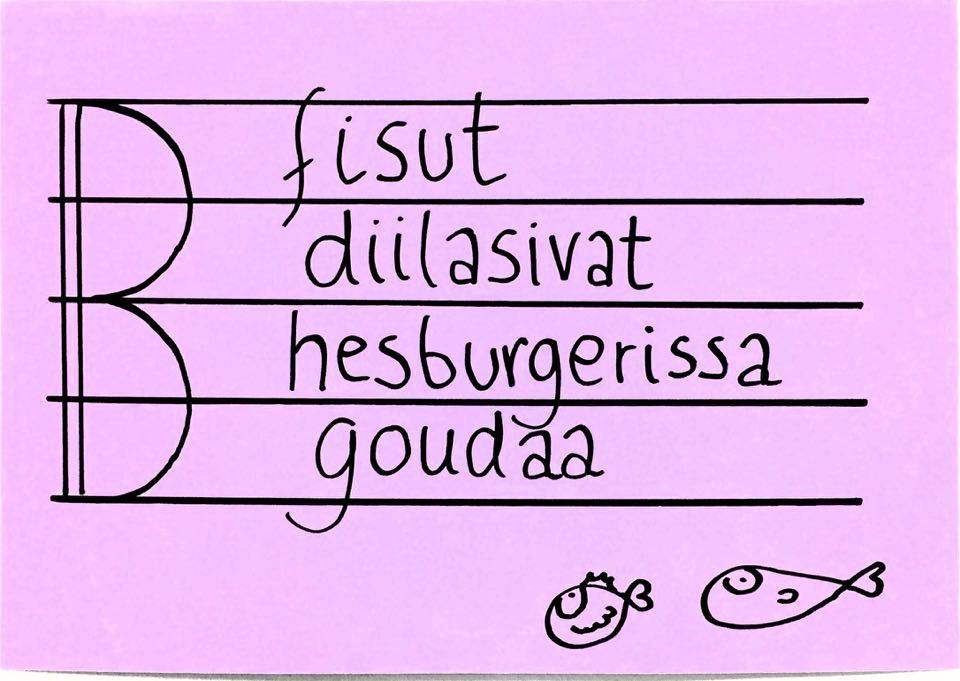 fisut
diilasivat
hesburgerissa
goudaa